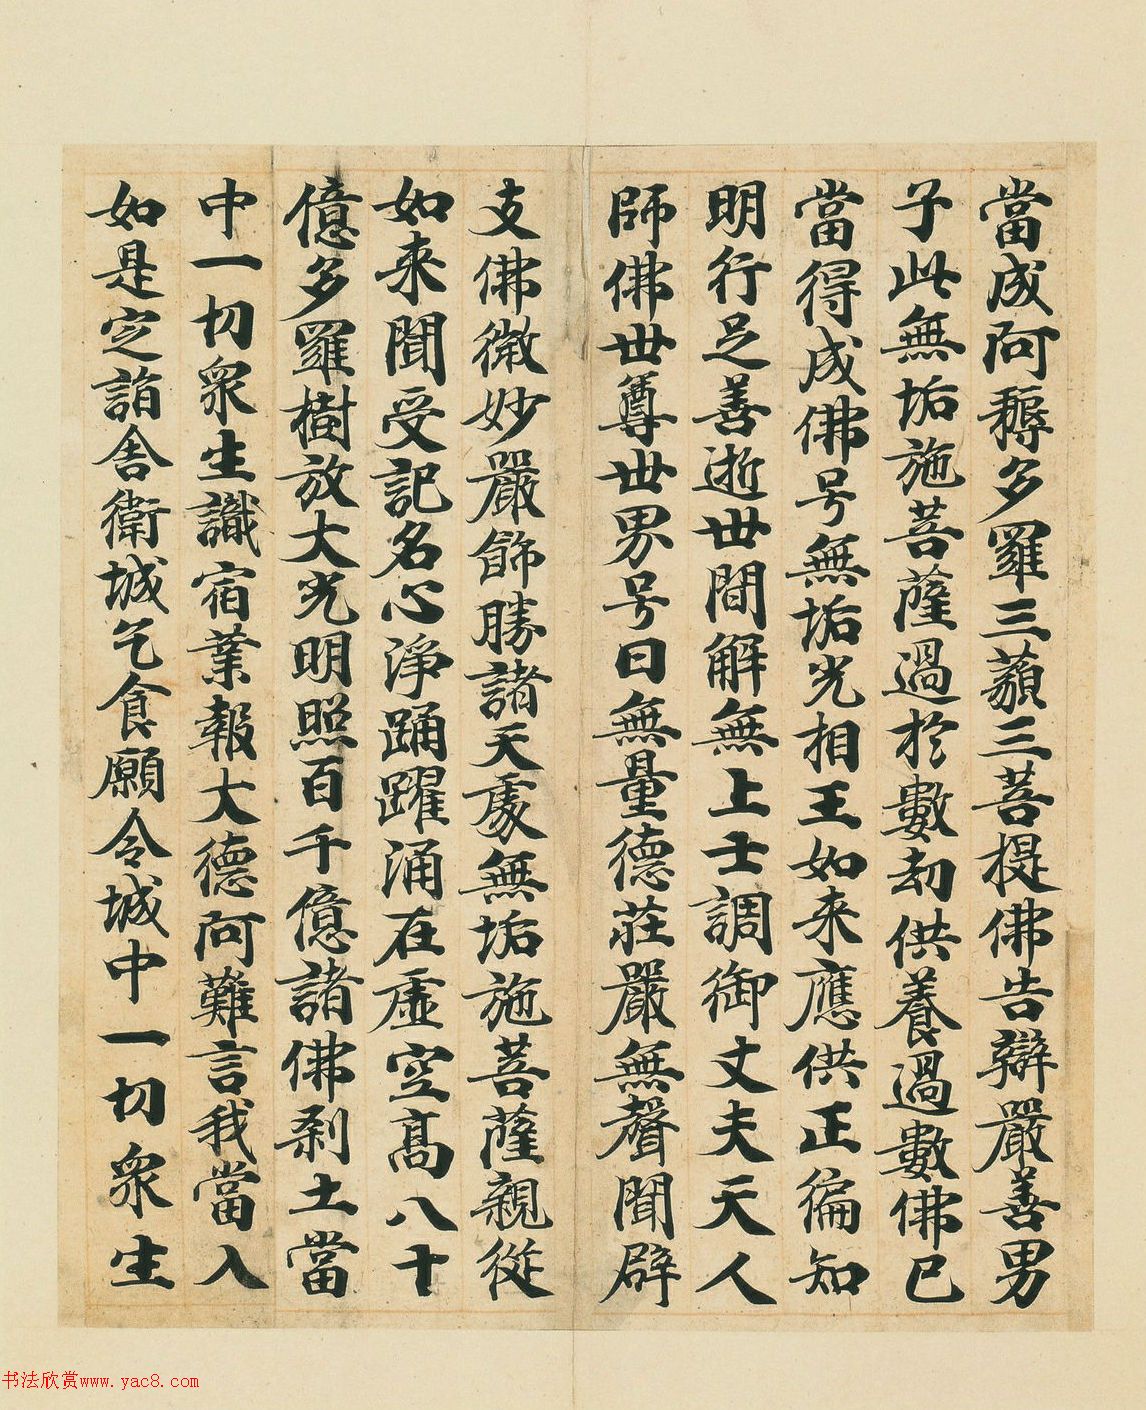 當成阿耨多羅三藐三菩提佛告辯嚴善男
子此無垢施菩薩過於數劫供養過數佛已
當得成佛号無垢光相王如来應供正徧知
明行足善逝世間解無上士調御丈夫天人
師佛世尊世界号曰無量德莊嚴無聲聞辟
支佛微妙嚴飾勝諸天處無垢施菩薩親從
如来聞受記名心淨踊躍涌在虛空高八十
億多羅樹放大光明照百千億諸佛刹土當
中一切衆生識宿業報大德阿難言我當入
如是定詣舍衛城乞食願令城中一切衆生
书法欣赏www.yac8.com